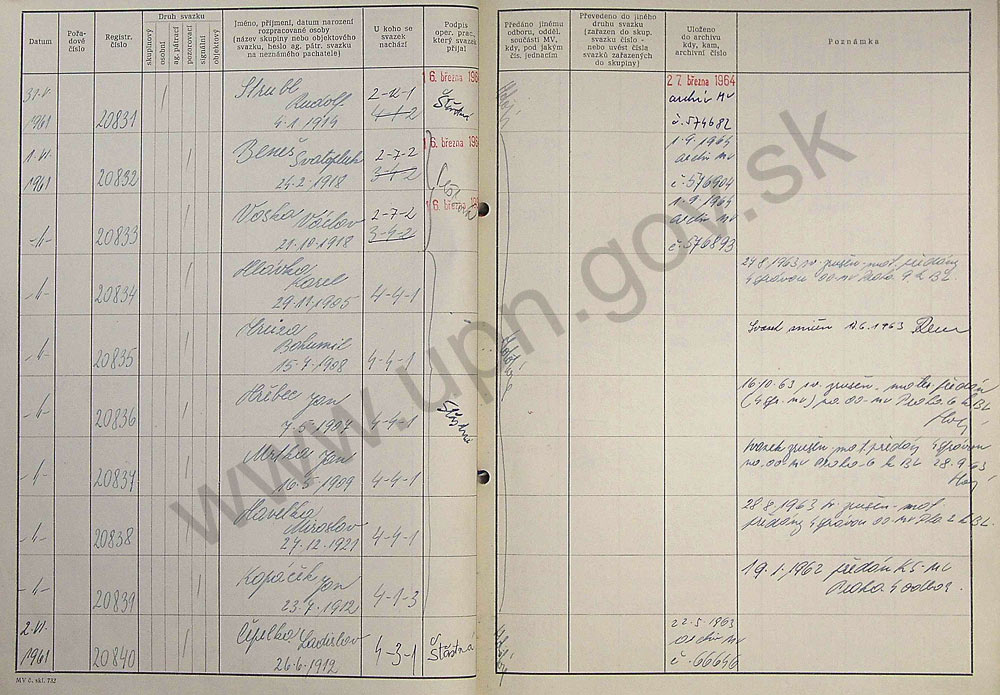 Datum
Pořadové číslo
Registr. číslo
Druh svazku
skupinový
osobní
ag. pátrací
pozorovací
signální
objektový
Jméno, příjmení, datum narození
rozpracované osoby
(název skupiny nebo objektového
svazku, heslo ag. pátr. svazku
na neznámého pachatele)
U koho se
svazek
nachází
Podpis
oper. prac.,
který svazek
přijal
Předáno jinému
odboru, odděl.
součásti MV,
kdy, pod jakým
čís. jednacím
Převedeno do jiného
druhu svazku
(zařazen do skup.
svazku číslo -
nebo uvést čísla
svazků zařazených
do skupiny)
Uloženo
do archivu
kdy, kam,
archivní číslo
Poznámka
31.V.
1961
20831
Strubl
Rudolf
4.1.1914
2-2-1
4-1-2
16. března 196
Šťastná
27. března 1964
archiv MV
č. 574682
1.VI.
1961
20832
Beneš
Svatopluk
24.2.1918
2-7-2
3-4-2
16. března 196
1.9.1964
archiv MV
č. 576904
-"-
20833
Voska
Václav
21.10.1918
2-7-2
3-4-2
16. března 19
1.9.1964
archiv MV
č. 576893
-"-
20834
Hlávka
Karel
29.11.1905
4-4-1
27.8.1963 sv. zrušen - mat. předány
-"-
20835
Bohumil
15.4.1908
4-4-1
Svazek zničen 12.6.1963
-"-
20836
Hřebec Jan
7.5.1902
4-4-1
Šťastná
16.10.63 sv. zrušen - mat. předán
(4 spr. MV) na OO-MV Praha 6
-"-
20837
Mrtka Jan
16.5.1909
4-4-1
Svazek zrušen mat. předán 4 správou
na OO MV Praha 6 k BL 28.9.63
-"-
20838
Havelka
Miroslav
27.12.1921
4-4-1
28.8.1963 sv. zrušen - mat.
předány 4 správou OO-MV
-"-
20839
Kopáček Jan
23.4.1912
4-1-3
19.1.1962 předán KS-MV
Praha 4 odbor.
2.VI.
1961
20840
Čepelka Ladislav
26.6.1912
4-3-1
Šťastná
22.5.1963
archiv MV
č. 66646
MV č. skl. 732
www.upn.gov.sk